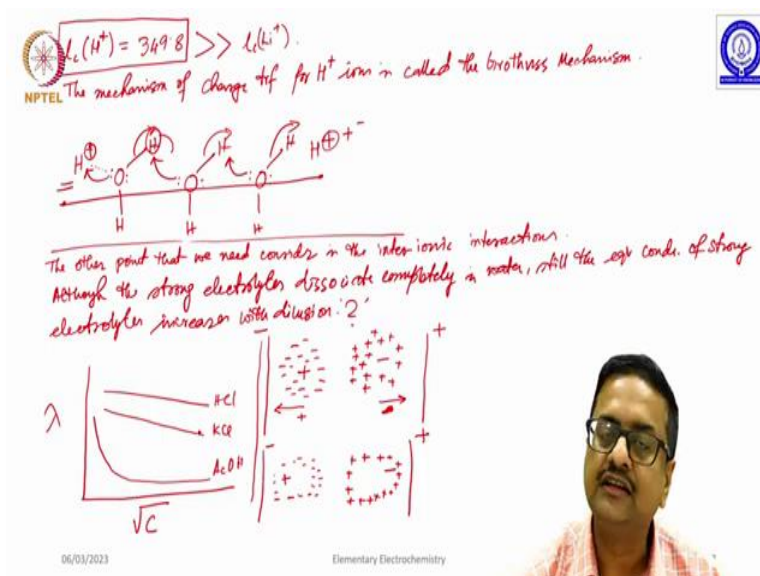 lc(H+) = 349.8 >> lc(Li+).
NPTEL
The mechanism of charge trf for H+ ions is called the Grothuss Mechanism.
H+ H H H H+ + -
= O O O
H H H
The other point that we need consdr is the inter ionic interactions.
Although the strong electrolytes dissociate completely in water, still the eqv condc. of strong
electrolytes increases with dilution. ?
λ
HCl
KCl
AcOH
√C
06/03/2023
Elementary Electrochemistry